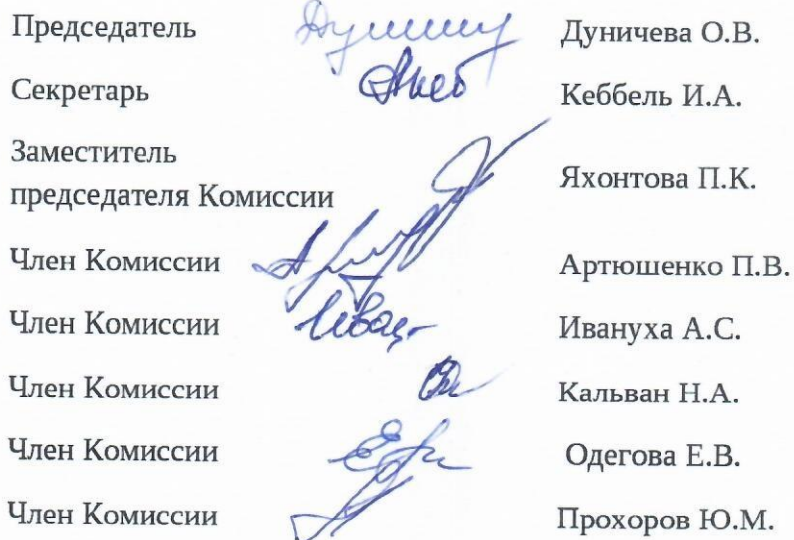 Председатель Дуничева О.В.
Секретарь Кеббель И.А.
Заместитель
председателя Комиссии Яхонтова П.К.
Член Комиссии Артюшенко П.В.
Член Комиссии Ивануха А.С.
Член Комиссии Кальван Н.А.
Член Комиссии Одегова Е.В.
Член Комиссии Прохоров Ю.М.